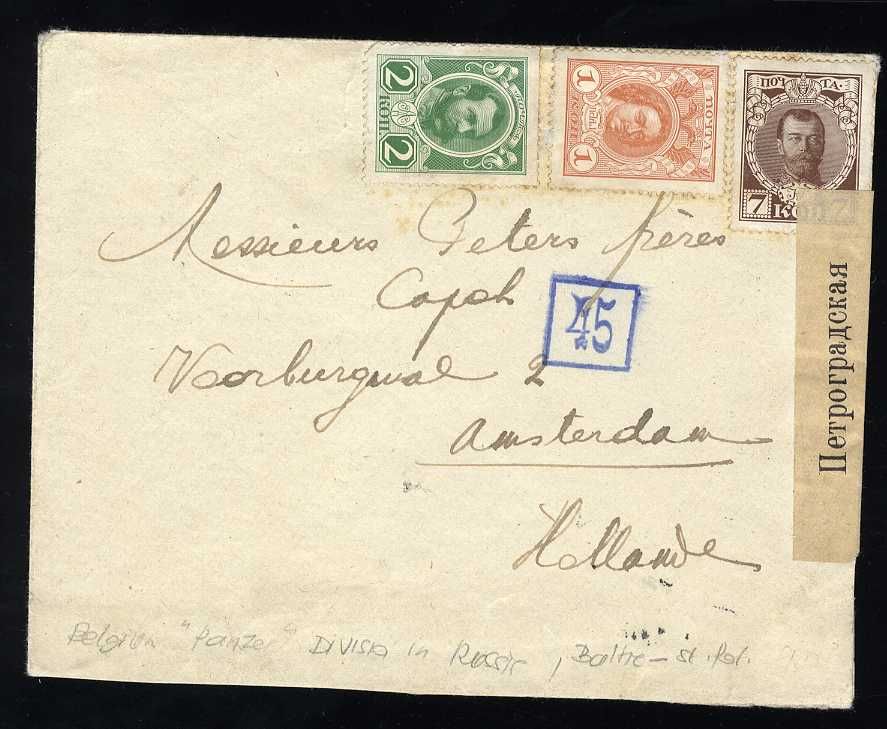 2 КОП 2
1 КОП 1
ПОЧТА
ПОЧ ТА
7 КОП 7
Messieurs Peters frères
45
Voorburgwal 2
Amsterdam
Hollande
Петроградская
Belgium "Panzer" Division in Russie, Baltic - st. Pet.